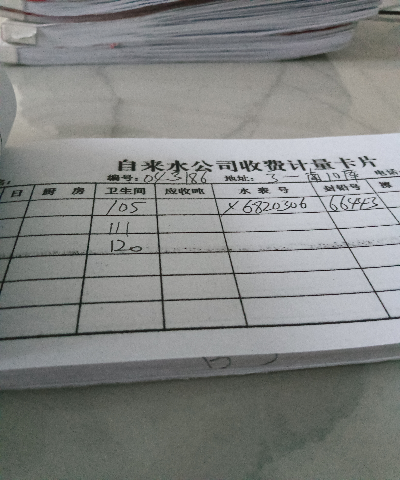 自来水公司收费计量卡片
编号: 043186 地址: 3一南10户 电话
日 厨房 卫生间 应收吨 水表号 封铅号
105 x6820306 66443
111
120